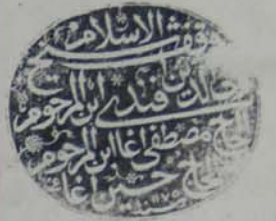 وقف شيخ الاسلام
خالد افندي ابن المرحوم
الحاج مصطفى اغا ابن المرحوم
الحاج حسين اغا